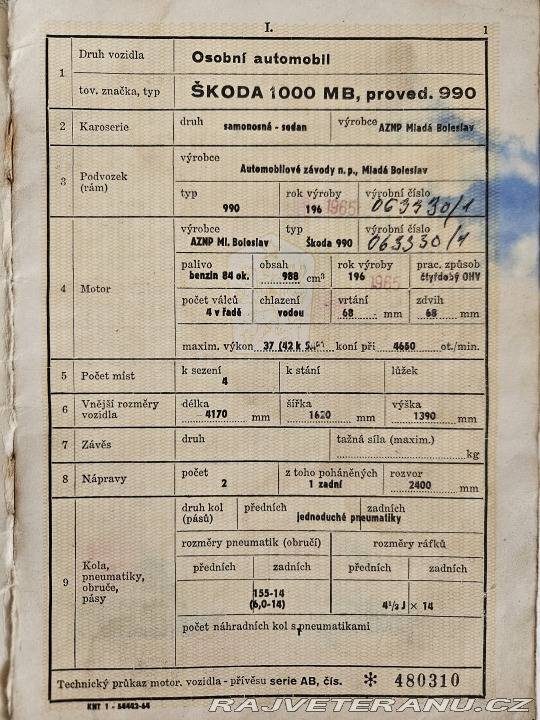 I.
1
1 Druh vozidla Osobní automobil
tov. značka, typ ŠKODA 1000 MB, proved. 990
2 Karoserie druh samonosná - sedan výrobce AZNP Mladá Boleslav
3 Podvozek (rám) výrobce
Automobilové závody n.p., Mladá Boleslav
typ rok výroby výrobní číslo
990 196 1965 063330/1
4 Motor výrobce typ výrobní číslo
AZNP Ml. Boleslav Škoda 990 063330/1
palivo obsah rok výroby prac. způsob
benzin 84 ok. 988 cm³ 196 1965 čtyřdobý OHV
počet válců chlazení vrtání zdvih
4 v řadě vodou 68 mm 68 mm
maxim. výkon 37 (42 k koní při 4650 ot./min.
5 Počet míst k sezení k stání lůžek
4
6 Vnější rozměry vozidla délka šířka výška
4170 mm 1620 mm 1390 mm
7 Závěs druh tažná síla (maxim.)
kg
8 Nápravy počet z toho poháněných rozvor
2 1 zadní 2400 mm
9 Kola, pneumatiky, obruče, pásy
druh kol (pásů) předních zadních
jednoduché pneumatiky
rozměry pneumatik (obručí) rozměry ráfků
předních zadních předních zadních
155-14
(6,0-14) 4½ J × 14
počet náhradních kol s pneumatikami
Technický průkaz motor. vozidla - přívěsu serie AB, čís. * 480310
KNT 1 - 54442-64
RAJVETERANU.CZ